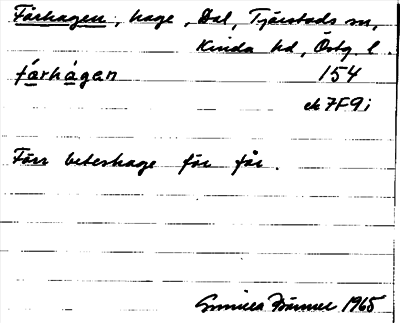 Fårhagen, hage, Dal, Tjärstads sn,
Kinda hd, Östg. l.
fårhågen 154
ek 7F9i
Förr beteshage för får.
Gunilla 1965